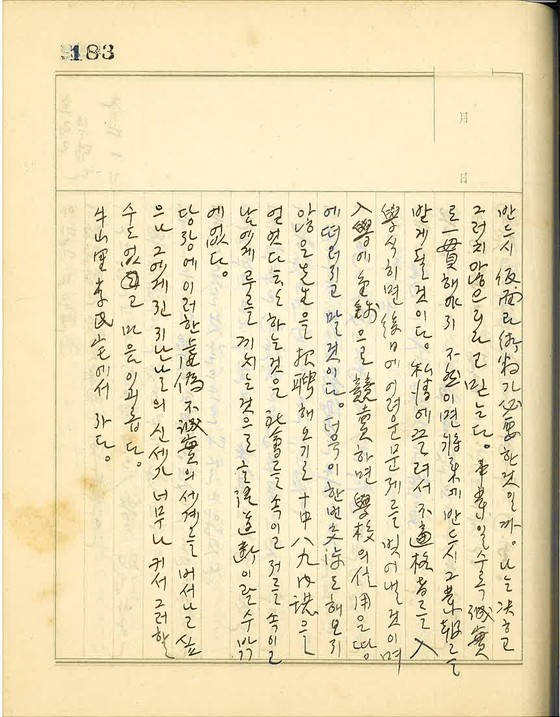 183
月
日
반드시 假面과 術粉가 必要한 것일까. 나는 決코
그렇지 않으리라고 믿는다. 事業일수록 誠實
로 一貫해야지 不然이면 將來에 반드시 그 業報를
받게 될 것이다. 私情에 끌려서 不適格者를 入
學식히면 後日에 어려운 문제를 벗어낼 것이며
入學에 金錢으로 競賣하면 學校의 信用은 땅
에 떠러지고 말 것이다. 더욱이 한번 交涉도 해보지
않은 先生을 招聘해오기로 十中八九 內諾을
얻었다 하는 것은 社會를 속이고 저를 속이고
남에게 루를 끼치는 것으로 言語道斷이랄 수밖
에 없다.
당장에 이러한 虛僞 不誠實의 세계를 버서나고 싶
으나 그에게 진 지난날의 신세가 너무나 커서 그러할
수도 없고 마음이 괴롭다.
牛山里 李氏宅에서 자다.